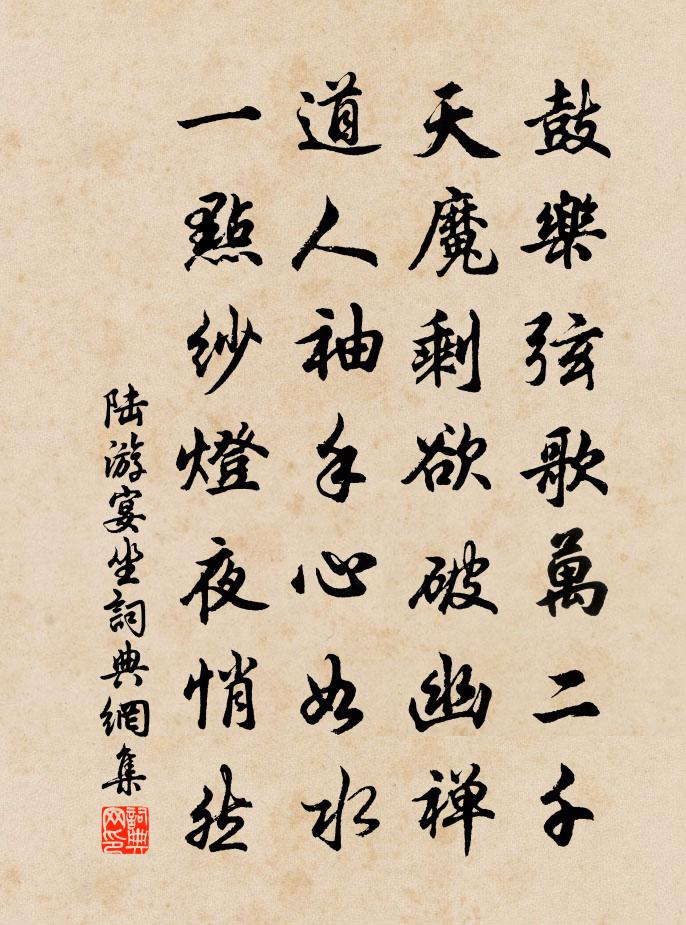 鼓樂弦歌萬二千
天魔剩欲破幽禪
道人袖手心如水
一點紗燈夜悄然
陆游宴坐詞典網集
詞典网印